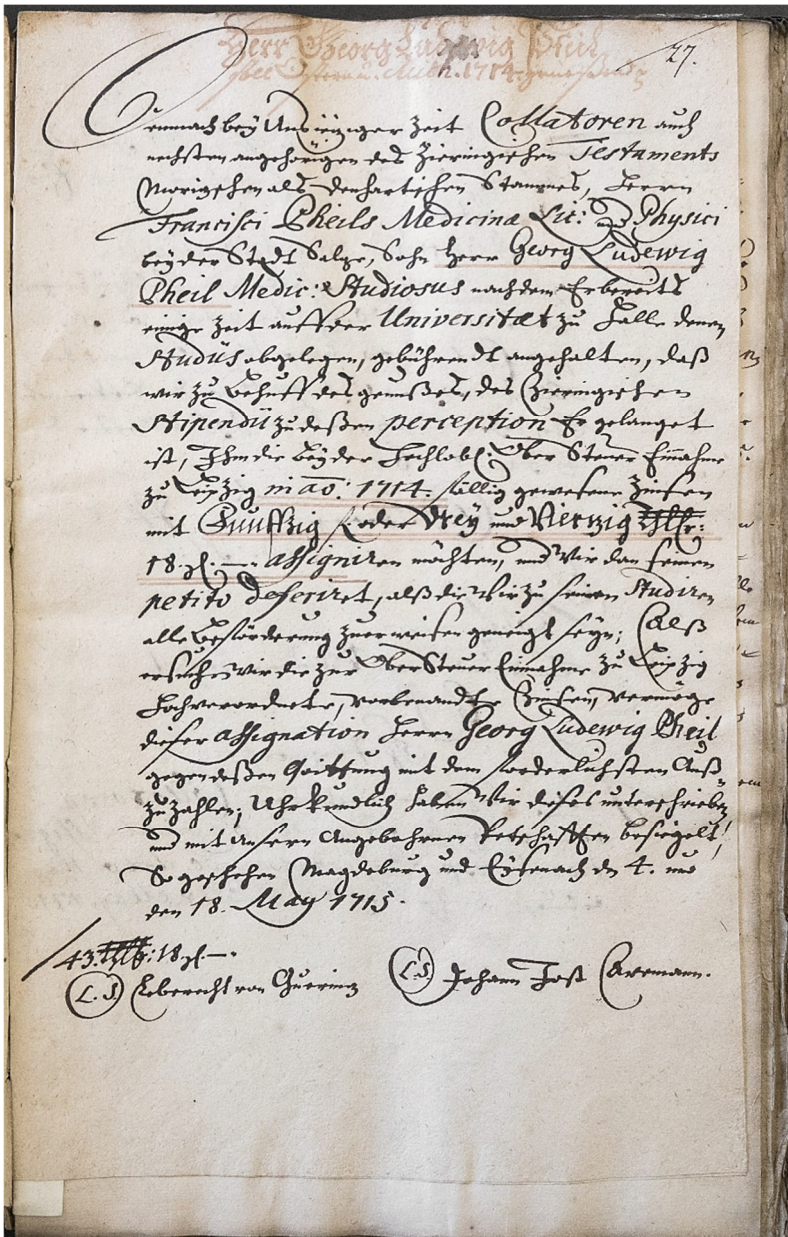 Herr Georg Ludewig Pheil
27.
über Ostern u. Mich. 1714.
Demnach bey Uns ieziger Zeit Collatoren auch
nechsten angehörigen des Zieringischen Testaments
Morizischen als Denhartischen Stammes, Herrn
Francisci Pheils Medicinæ Lit: & Physici
bey der Stadt Salze, Sohn Herr Georg Ludewig
Pheil Medic: Studiosus nachdem Er bereits
einige Zeit auff der Universitæt zu Halle denen
Studiis obgelegen, gebührendt angehalten, daß
wir zu Behuff des genußes, des Zieringischen
Stipendii zu deßen perception Er gelanget
ist, Ihm die bey der Hochlobl: Ober Steuer Einnahme
zu Leipzig in ao: 1714. fällig gewesene Zinsen
mit Funffzig f. oder Drey und Vierzig Thlr:
18. gl. —. assigniren möchten, und Wir dan seinem
petito deferiret, alß die Wir zu seinen Studiren
alle Beförderung zu erweisen geneigt seyn; Alß
ersuchen Wir die zur Ober Steuer Einnahme zu Leipzig
Hochverordnete, vorbenandte Zinsen, vermöge
dieser assignation Herrn Georg Ludewig Pheil
gegen deßen Quittung mit dem forderlichsten Auß
zu zahlen; Uhrkundlich haben Wir dieses unterschrieben
und mit Unsern Angebohrnen Petschafften besiegelt!
So geschehen Magdeburg und Eysenach den 4. und
den 18. May 1715.
43. Thlr: 18 gl. —.
(L.S) Leberecht von Guericke
(L.S) Johann Jost